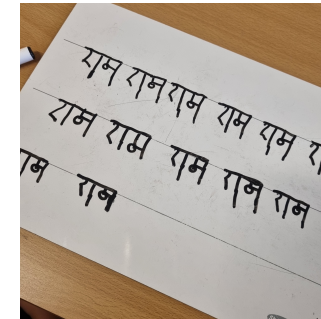 राम राम राम राम राम
राम राम राम राम राम
राम राम